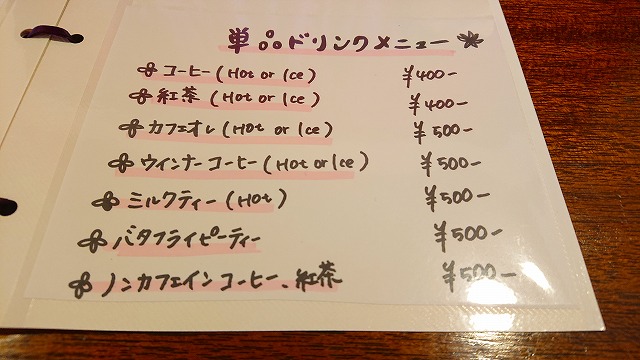 単品ドリンクメニュー
コーヒー (Hot or Ice) ¥400-
紅茶 (Hot or Ice) ¥400-
カフェオレ (Hot or Ice) ¥500-
ウインナーコーヒー (Hot or Ice) ¥500-
ミルクティー (Hot) ¥500-
バタフライピーティー ¥500-
ノンカフェインコーヒー、紅茶 ¥500-